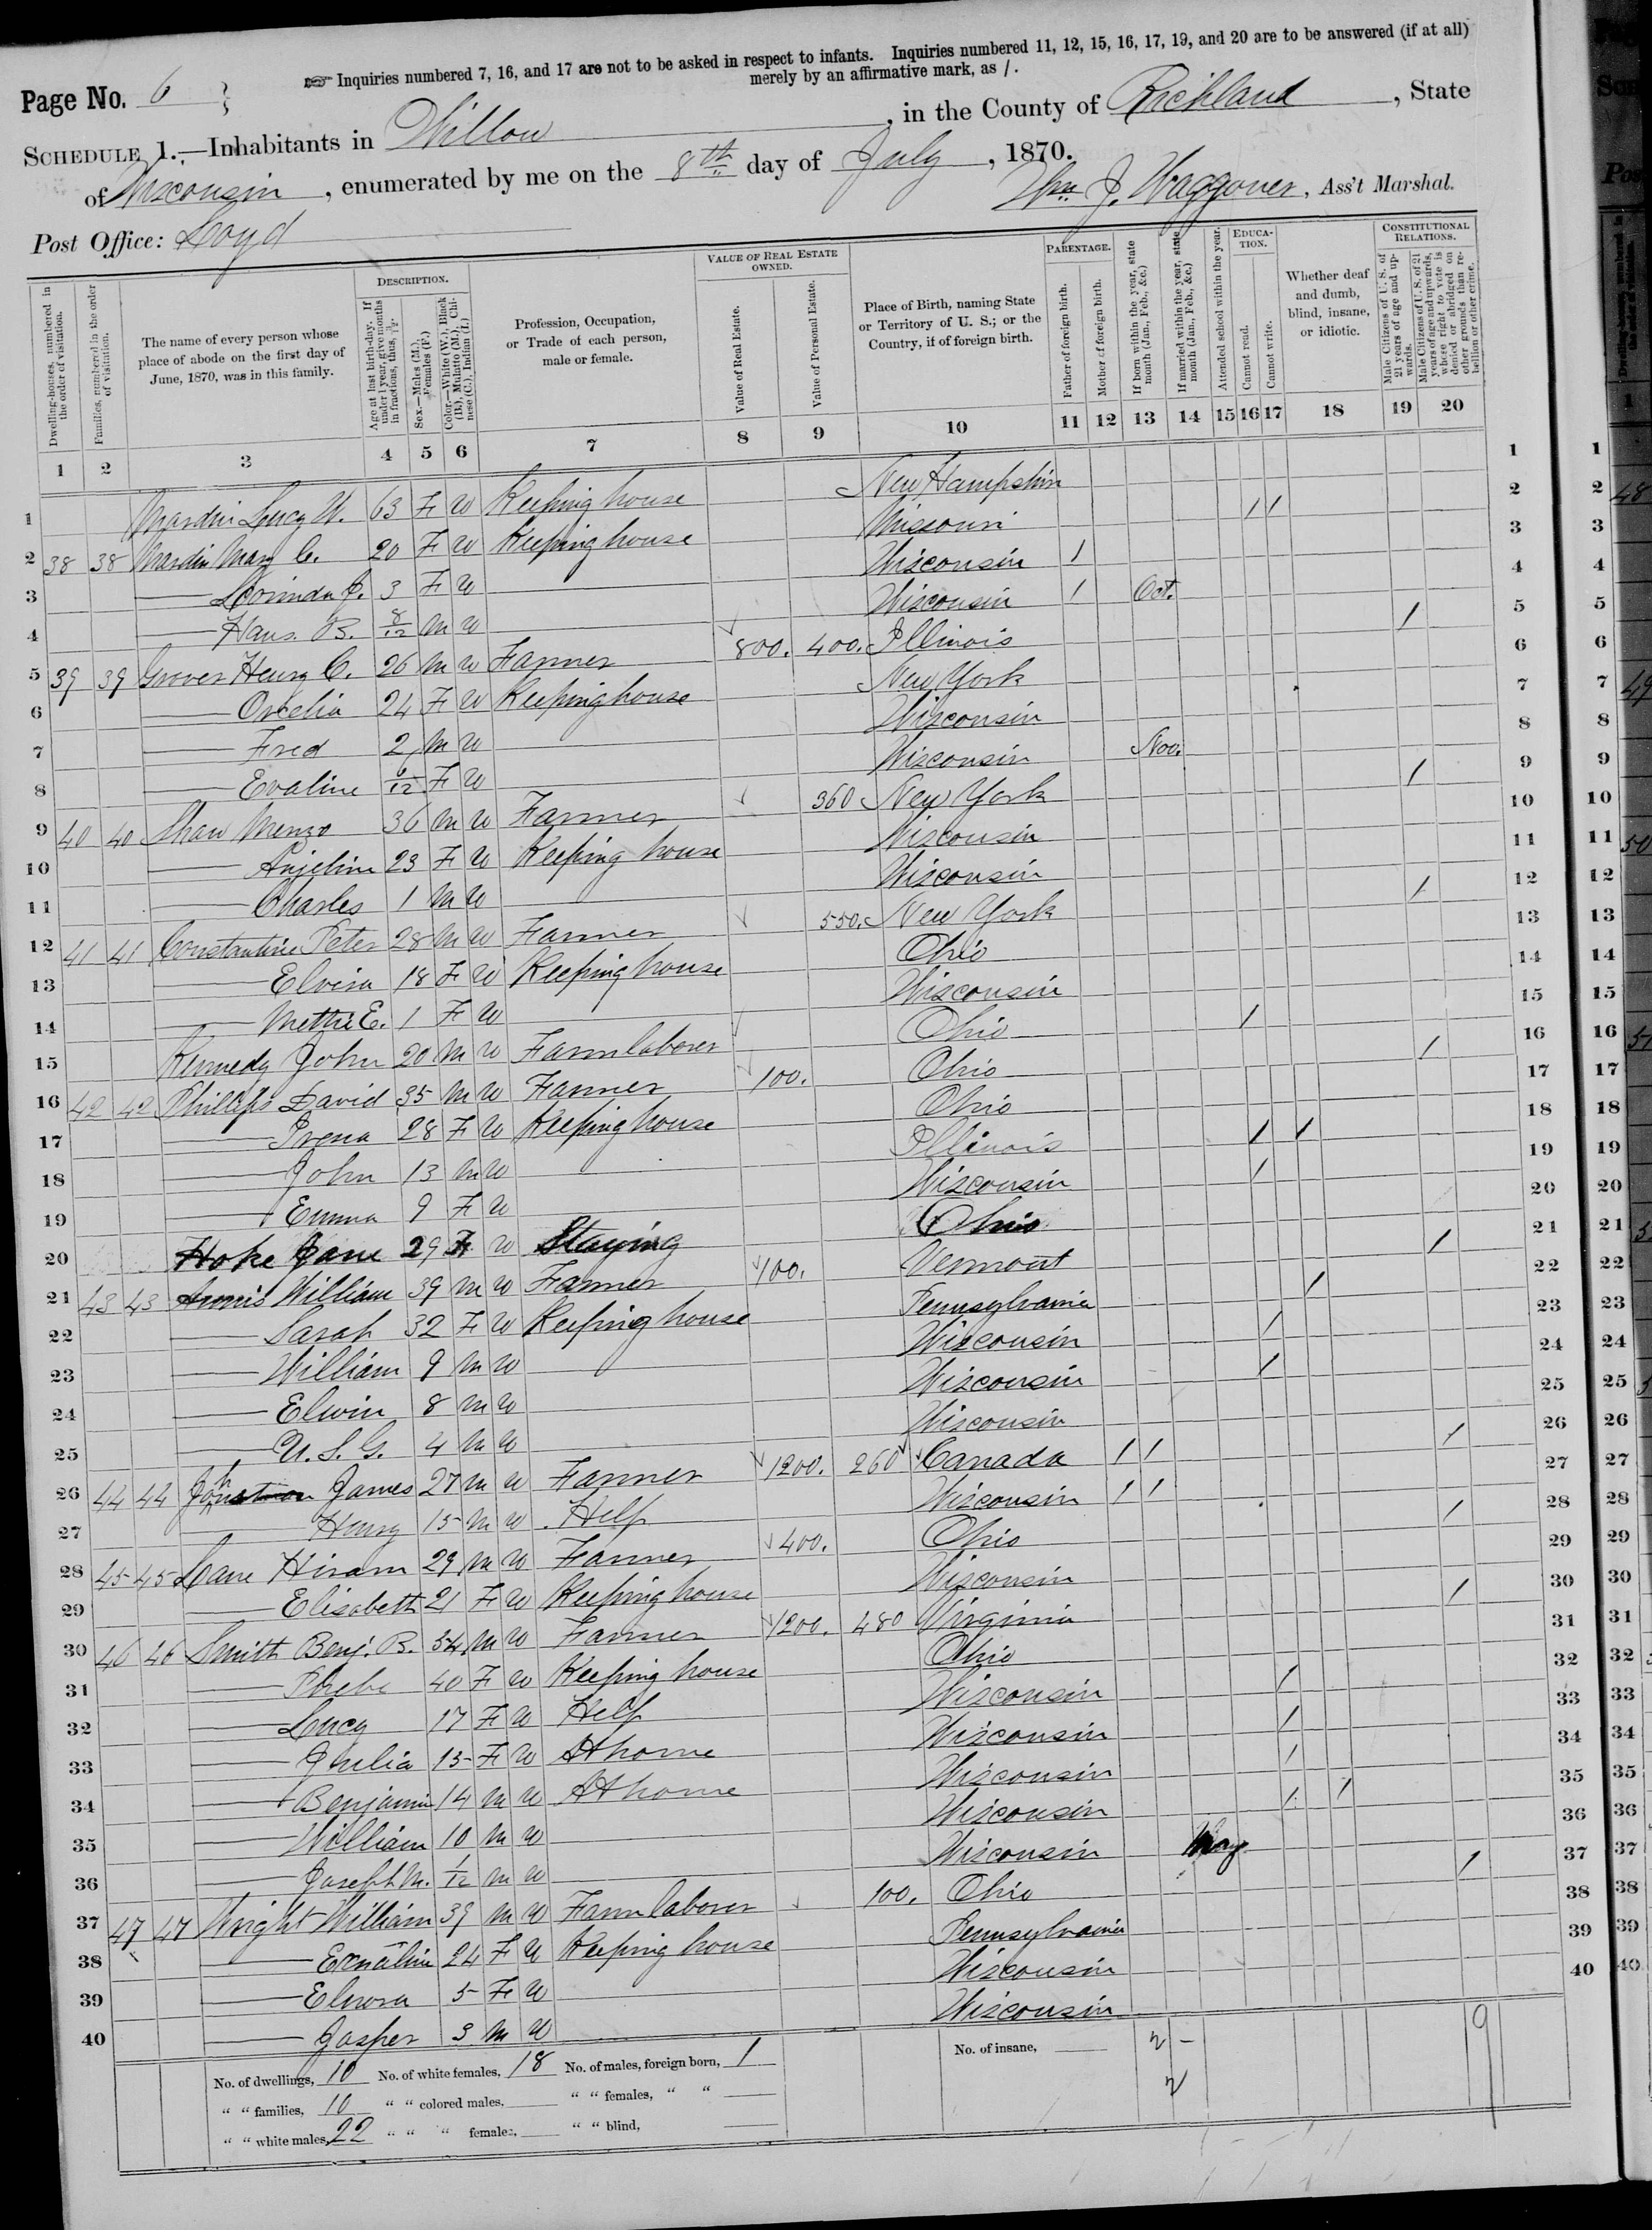 Page No. 6
☞ Inquiries numbered 7, 16, and 17 are not to be asked in respect to infants. Inquiries numbered 11, 12, 15, 16, 17, 19, and 20 are to be answered (if at all)
merely by an affirmative mark, as /.
SCHEDULE 1.—Inhabitants in Willow, in the County of Richland, State
of Wisconsin, enumerated by me on the 8th day of July, 1870.
Post Office: Loyd
Wm J. Waggoner, Ass't Marshal.
Dwelling-houses, numbered in the order of visitation.
Families, numbered in the order of visitation.
The name of every person whose place of abode on the first day of June, 1870, was in this family.
DESCRIPTION.
Age at last birth-day. If under 1 year, give months in fractions, thus, 3/12.
Sex.—Males (M.), Females (F.)
Color.—White (W.), Black (B.), Mulatto (M.), Chinese (C.), Indian (I.)
Profession, Occupation, or Trade of each person, male or female.
VALUE OF REAL ESTATE OWNED.
Value of Real Estate.
Value of Personal Estate.
Place of Birth, naming State or Territory of U. S.; or the Country, if of foreign birth.
PARENTAGE.
Father of foreign birth.
Mother of foreign birth.
If born within the year, state month (Jan., Feb., &c.)
If married within the year, state month (Jan., Feb., &c.)
Attended school within the year.
EDUCATION.
Cannot read.
Cannot write.
Whether deaf and dumb, blind, insane, or idiotic.
CONSTITUTIONAL RELATIONS.
Male Citizens of U. S. of 21 years of age and upwards.
Male Citizens of U. S. of 21 years of age and upwards, where right to vote is denied or abridged on other grounds than rebellion or other crime.
1 2 3 4 5 6 7 8 9 10 11 12 13 14 15 16 17 18 19 20
1 Mardin Lucy W. 63 F W Keeping house New Hampshire 1
2 38 38 Mardin Mary C. 20 F W Keeping house Missouri / / 2
3 —— Lorinda J. 3 F W Wisconsin 1 3
4 —— Hans. B. 8/12 M W Wisconsin 1 Oct. 4
5 39 39 Grover Henry C. 26 M W Farmer 800. 400. Illinois / 5
6 —— Orelia 24 F W Keeping house New York 6
7 —— Fred 2 M W Wisconsin 7
8 —— Evaline /12 F W Wisconsin Nov. 8
9 40 40 Shaw Menzo 36 M W Farmer 360 New York / 9
10 —— Anjeline 23 F W Keeping house Wisconsin 10
11 —— Charles 1 M W Wisconsin 11
12 41 41 Constantine Peter 28 M W Farmer 550. New York / 12
13 —— Elvira 18 F W Keeping house Ohio 13
14 —— Mettie E. 1 F W Wisconsin 14
15 Kennedy John 20 M W Farm laborer Ohio / 15
16 42 42 Phillips David 35 M W Farmer 100. Ohio / 16
17 —— 28 F W Keeping house Ohio 17
18 —— John 13 M W Illinois / / 18
19 —— Emma 9 F W Wisconsin / 19
20 Hoke Jane 29 F W Staying Ohio 20
21 43 43 Annis William 39 M W Farmer 100. Vermont / 21
22 —— Sarah 32 F W Keeping house Pennsylvania / 22
23 —— William 9 M W Wisconsin / 23
24 —— Elwin 8 M W Wisconsin / 24
25 —— U. S. G. 4 M W Wisconsin 25
26 44 44 James 27 M W Farmer 1200. 260 Canada 1 1 / 26
27 —— Henry 15 M W Help Wisconsin 1 1 27
28 45 45 Lane Hiram 29 M W Farmer 400. Ohio / 28
29 —— Elisabeth 21 F W Keeping house Wisconsin 29
30 46 46 Smith Benj. B. 54 M W Farmer 1200. 480 Virginia / 30
31 —— Phebe 40 F W Keeping house Ohio 31
32 —— Lucy 17 F W Help Wisconsin / 32
33 —— Julia 15 F W At home Wisconsin / 33
34 —— Benjamin 14 M W At home Wisconsin / 34
35 —— William 10 M W Wisconsin / / 35
36 —— Joseph M. 1/12 M W Wisconsin May 36
37 47 47 Wright William 39 M W Farm laborer 100. Ohio / 37
38 —— Ernaline 24 F W Keeping house Pennsylvania 38
39 —— Elnora 5 F W Wisconsin 39
40 —— Jasper 3 M W Wisconsin 40
No. of dwellings, 10 No. of white females, 18 No. of males, foreign born, 1 No. of insane, 2 – 9
" " families, 10 " " colored males, " " females, " " 2
" " white males, 22 " " " females, " " blind,